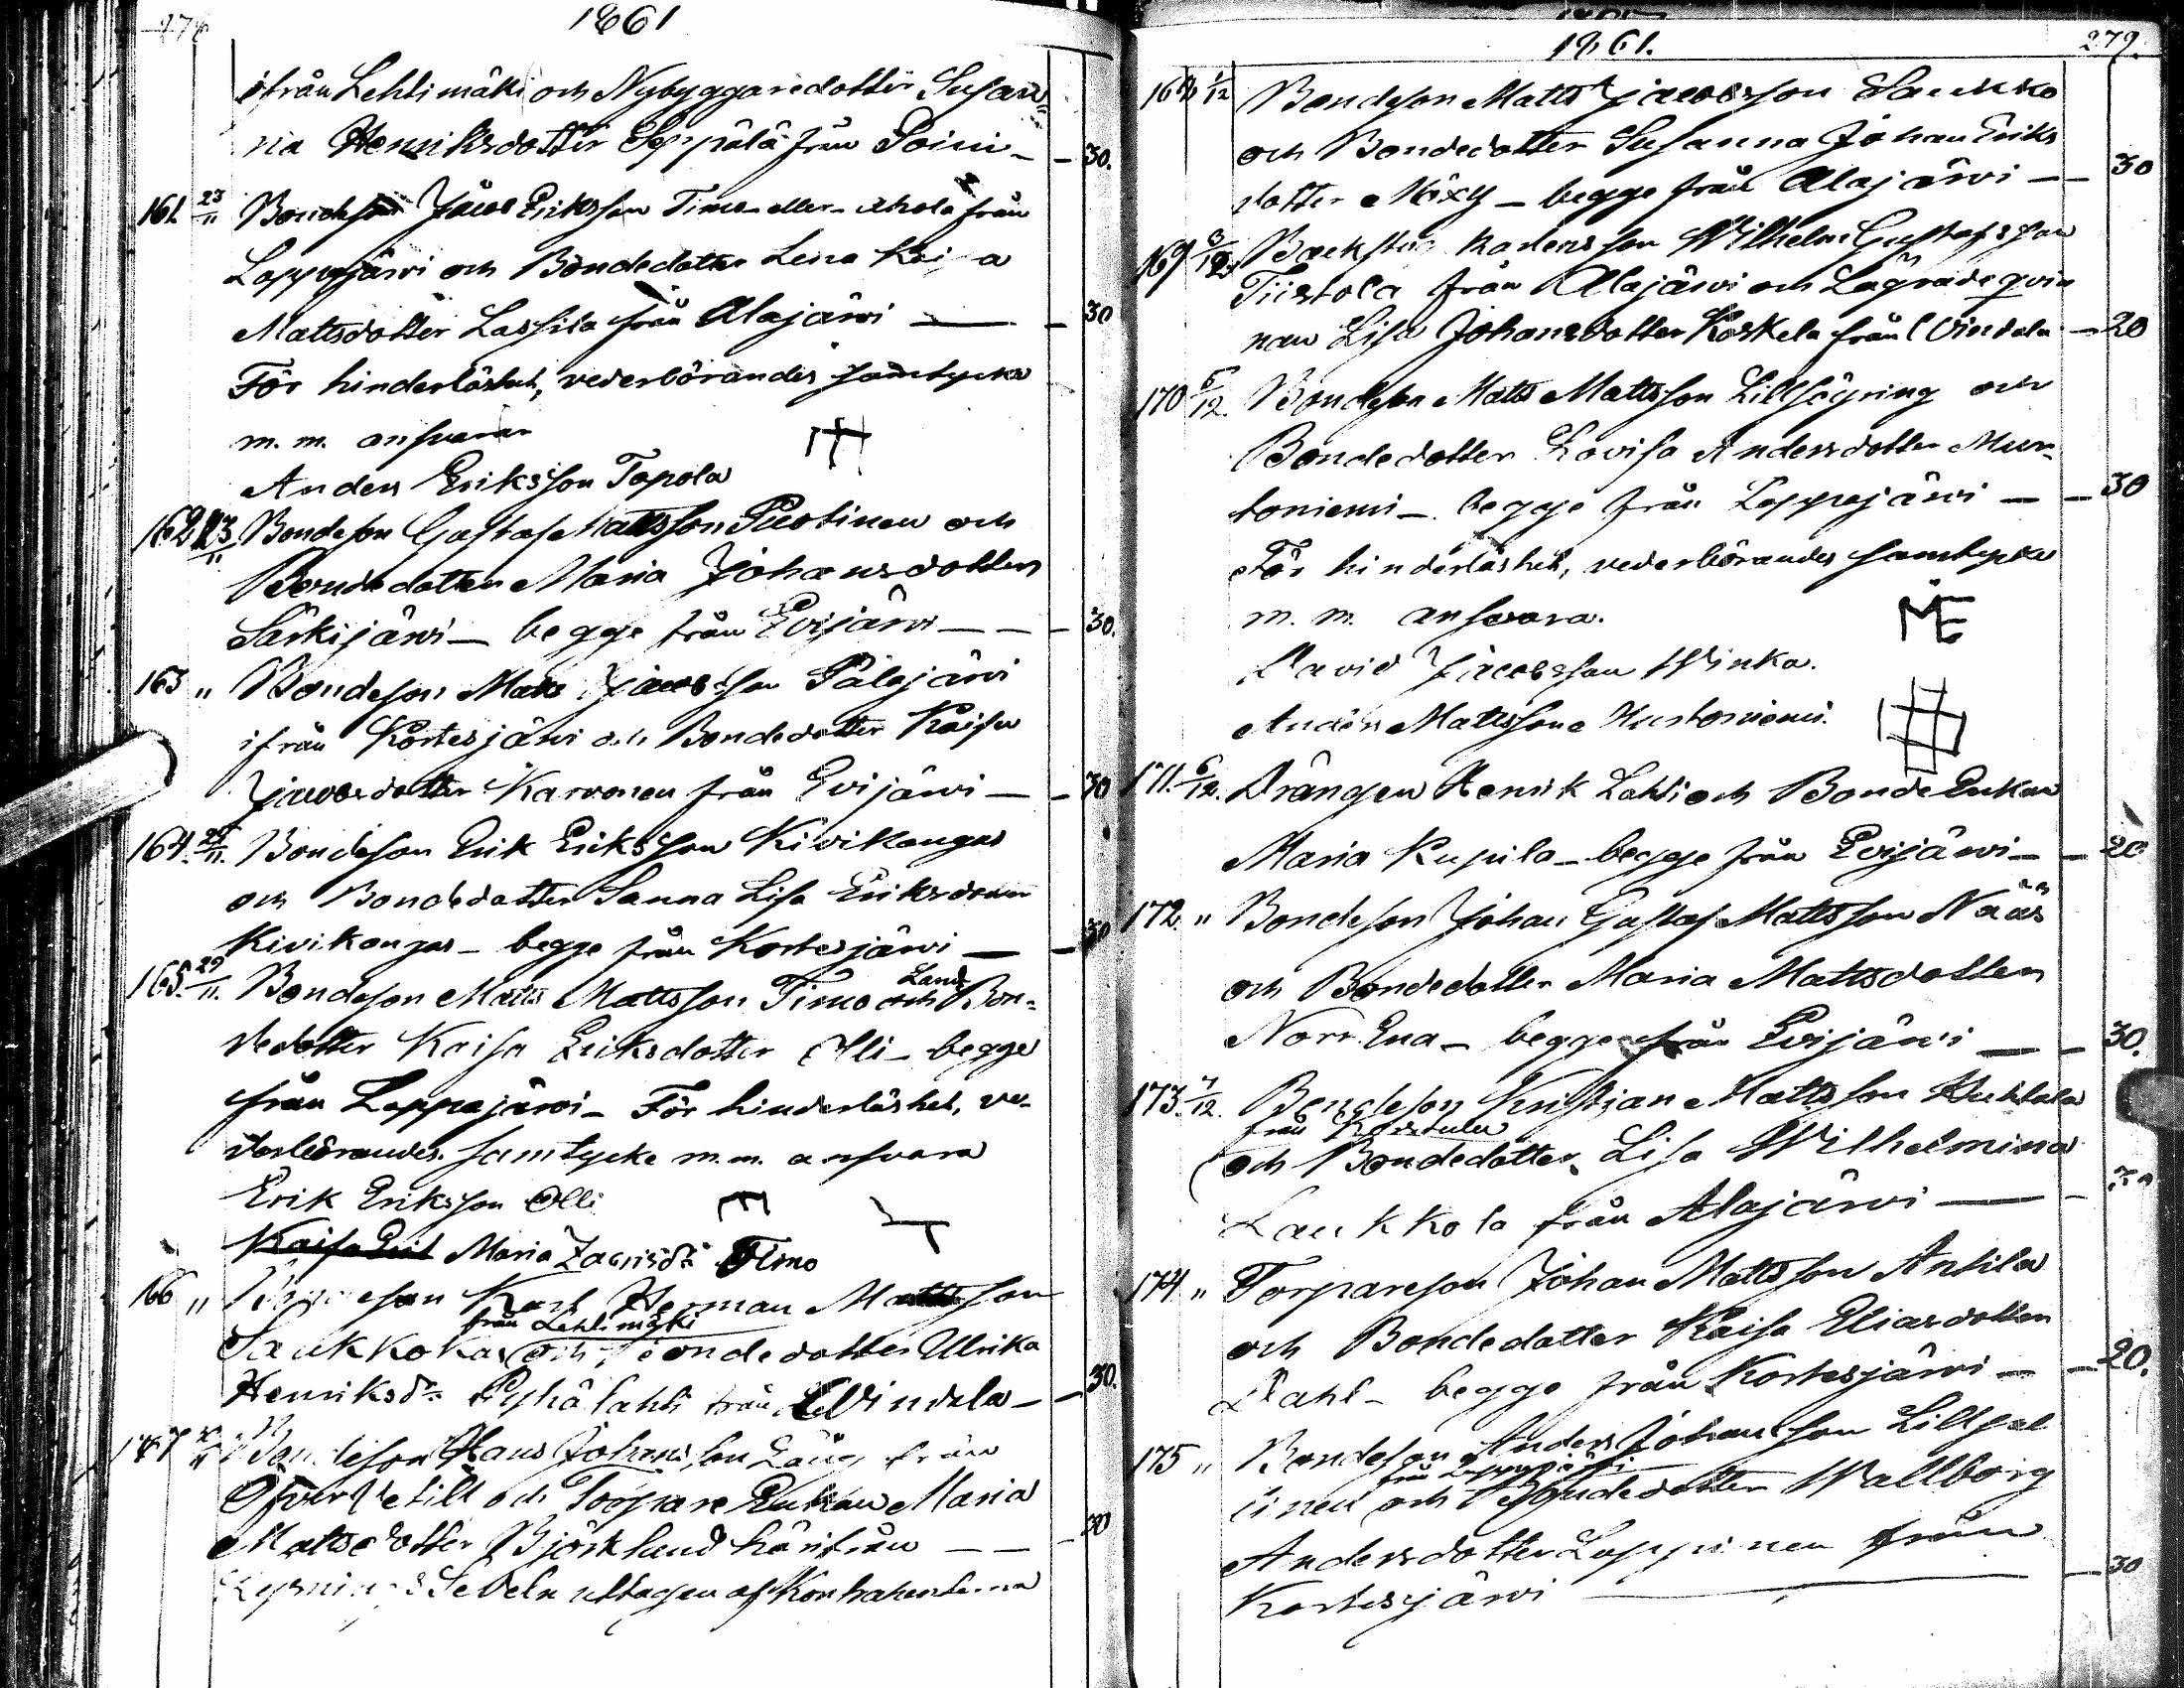 278
1861
ifrån Lehtimäki och Nybyggaredotter Susan=
na Henriksdotter Seppälä från Soini — — 30.
161. 23/11 Bondeson Jacob Eriksson Timo eller Ahola från
Lappajärvi och Bondedotter Lena Kaisa
Mattsdotter Lassila från Alajärvi — — 30
För hinderlöshet, vederbörandes samtycke
m. m. ansvarar
Anders Eriksson Topola
162 23/11 Bondeson Gustaf Mattsson Puotinen och
Bondedotter Maria Johansdotter
Särkijärvi — begge från Evijärvi — — — 30.
163 " Bondeson Matts Jacobsson Pålajärvi
ifrån Kortesjärvi och Bondedotter Kaisa
Jacobsdotter Karvonen från Evijärvi — — 30
164. 25/11. Bondeson Erik Eriksson Kivikangas
och Bondedotter Sanna Lisa Eriksdotter
Kivikangas — begge från Kortesjärvi — — 30
165. 29/11. Bondeson Matts Mattsson Timo och Land Bon=
dedotter Kaisa Eriksdotter Olli — begge
från Lappajärvi — För hinderlöshet, ve=
derbörandes samtycke m. m. ansvara
Erik Eriksson Olli
Kaisa Erik Maria Zacrisdr Timo
166 " Bondeson Karl Herman Mattsson
från Lehtimäki
Saukkokas och Bondedotter Ulrika
Henriksdr Pyhälahti från Windala — — 30.
167 Bondeson Hans Johansson Lång från
Öfver Vetill och Torpare Enkan Maria
Mattsdotter Björklund härifrån — — — 30
Lysnings Sedeln uttagen af Kontrahenterna
1861.
279.
168 1/12 Bondeson Matts Jacobsson Saukko
och Bondedotter Susanna Johan Eriks
dotter Mäxy — begge från Alajärvi — — 30
169 3/12 Backstug karlensson Wilhelm Gustafsson
Tiistola från Alajärvi och Lägradeqvin
nan Lisa Johansdotter Koskela från Vindala — 20
170 5/12. Bondeson Matts Mattsson Lillsögring och
Bondedotter Lovisa Andersdotter Mus=
toniemi — begge från Lappajärvi — — 30
För hinderlöshet, vederbörandes samtycke
m. m. ansvara.
David Jacobsson Winka.
Anders Mattsson Mustoniemi.
171. 6/12. Drängen Henrik Lahti och Bonde Enkan
Maria Kupila — begge från Evijärvi — — 20
172. " Bondeson Johan Gustaf Mattsson Nääs
och Bondedotter Maria Mattsdotter
Norr Ena — begge från Evijärvi — — 30.
173. 7/12. Bondeson Kristian Mattsson Huhtala
från Karstula
och Bondedotter Lisa Wilhelmina
Laukkola från Alajärvi — — 30
174. " Torpareson Johan Mattsson Antila
och Bondedotter Kaisa Eliasdotter
Dahl — begge från Kortesjärvi — — 20.
175 " Bondeson Anders Johansson Lillpel
från Lappajärvi
linen och Bondedotter Wallborg
Andersdotter Lappinen från
Kortesjärvi — — 30